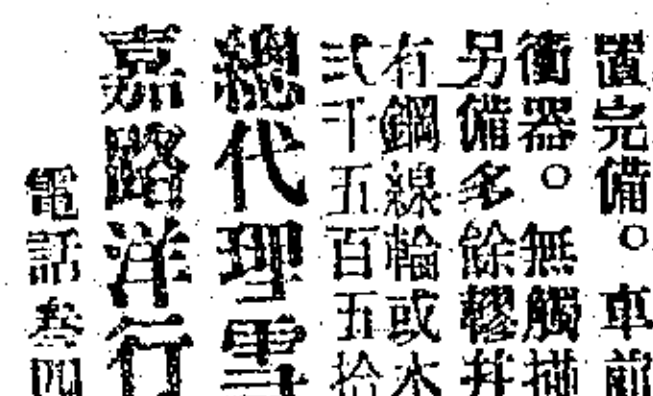 置完備。車前
衝器。無觸
另備多餘轇并
有鋼線輪或木
弍千五百五拾
總代理雲
嘉路洋行
電話叁四